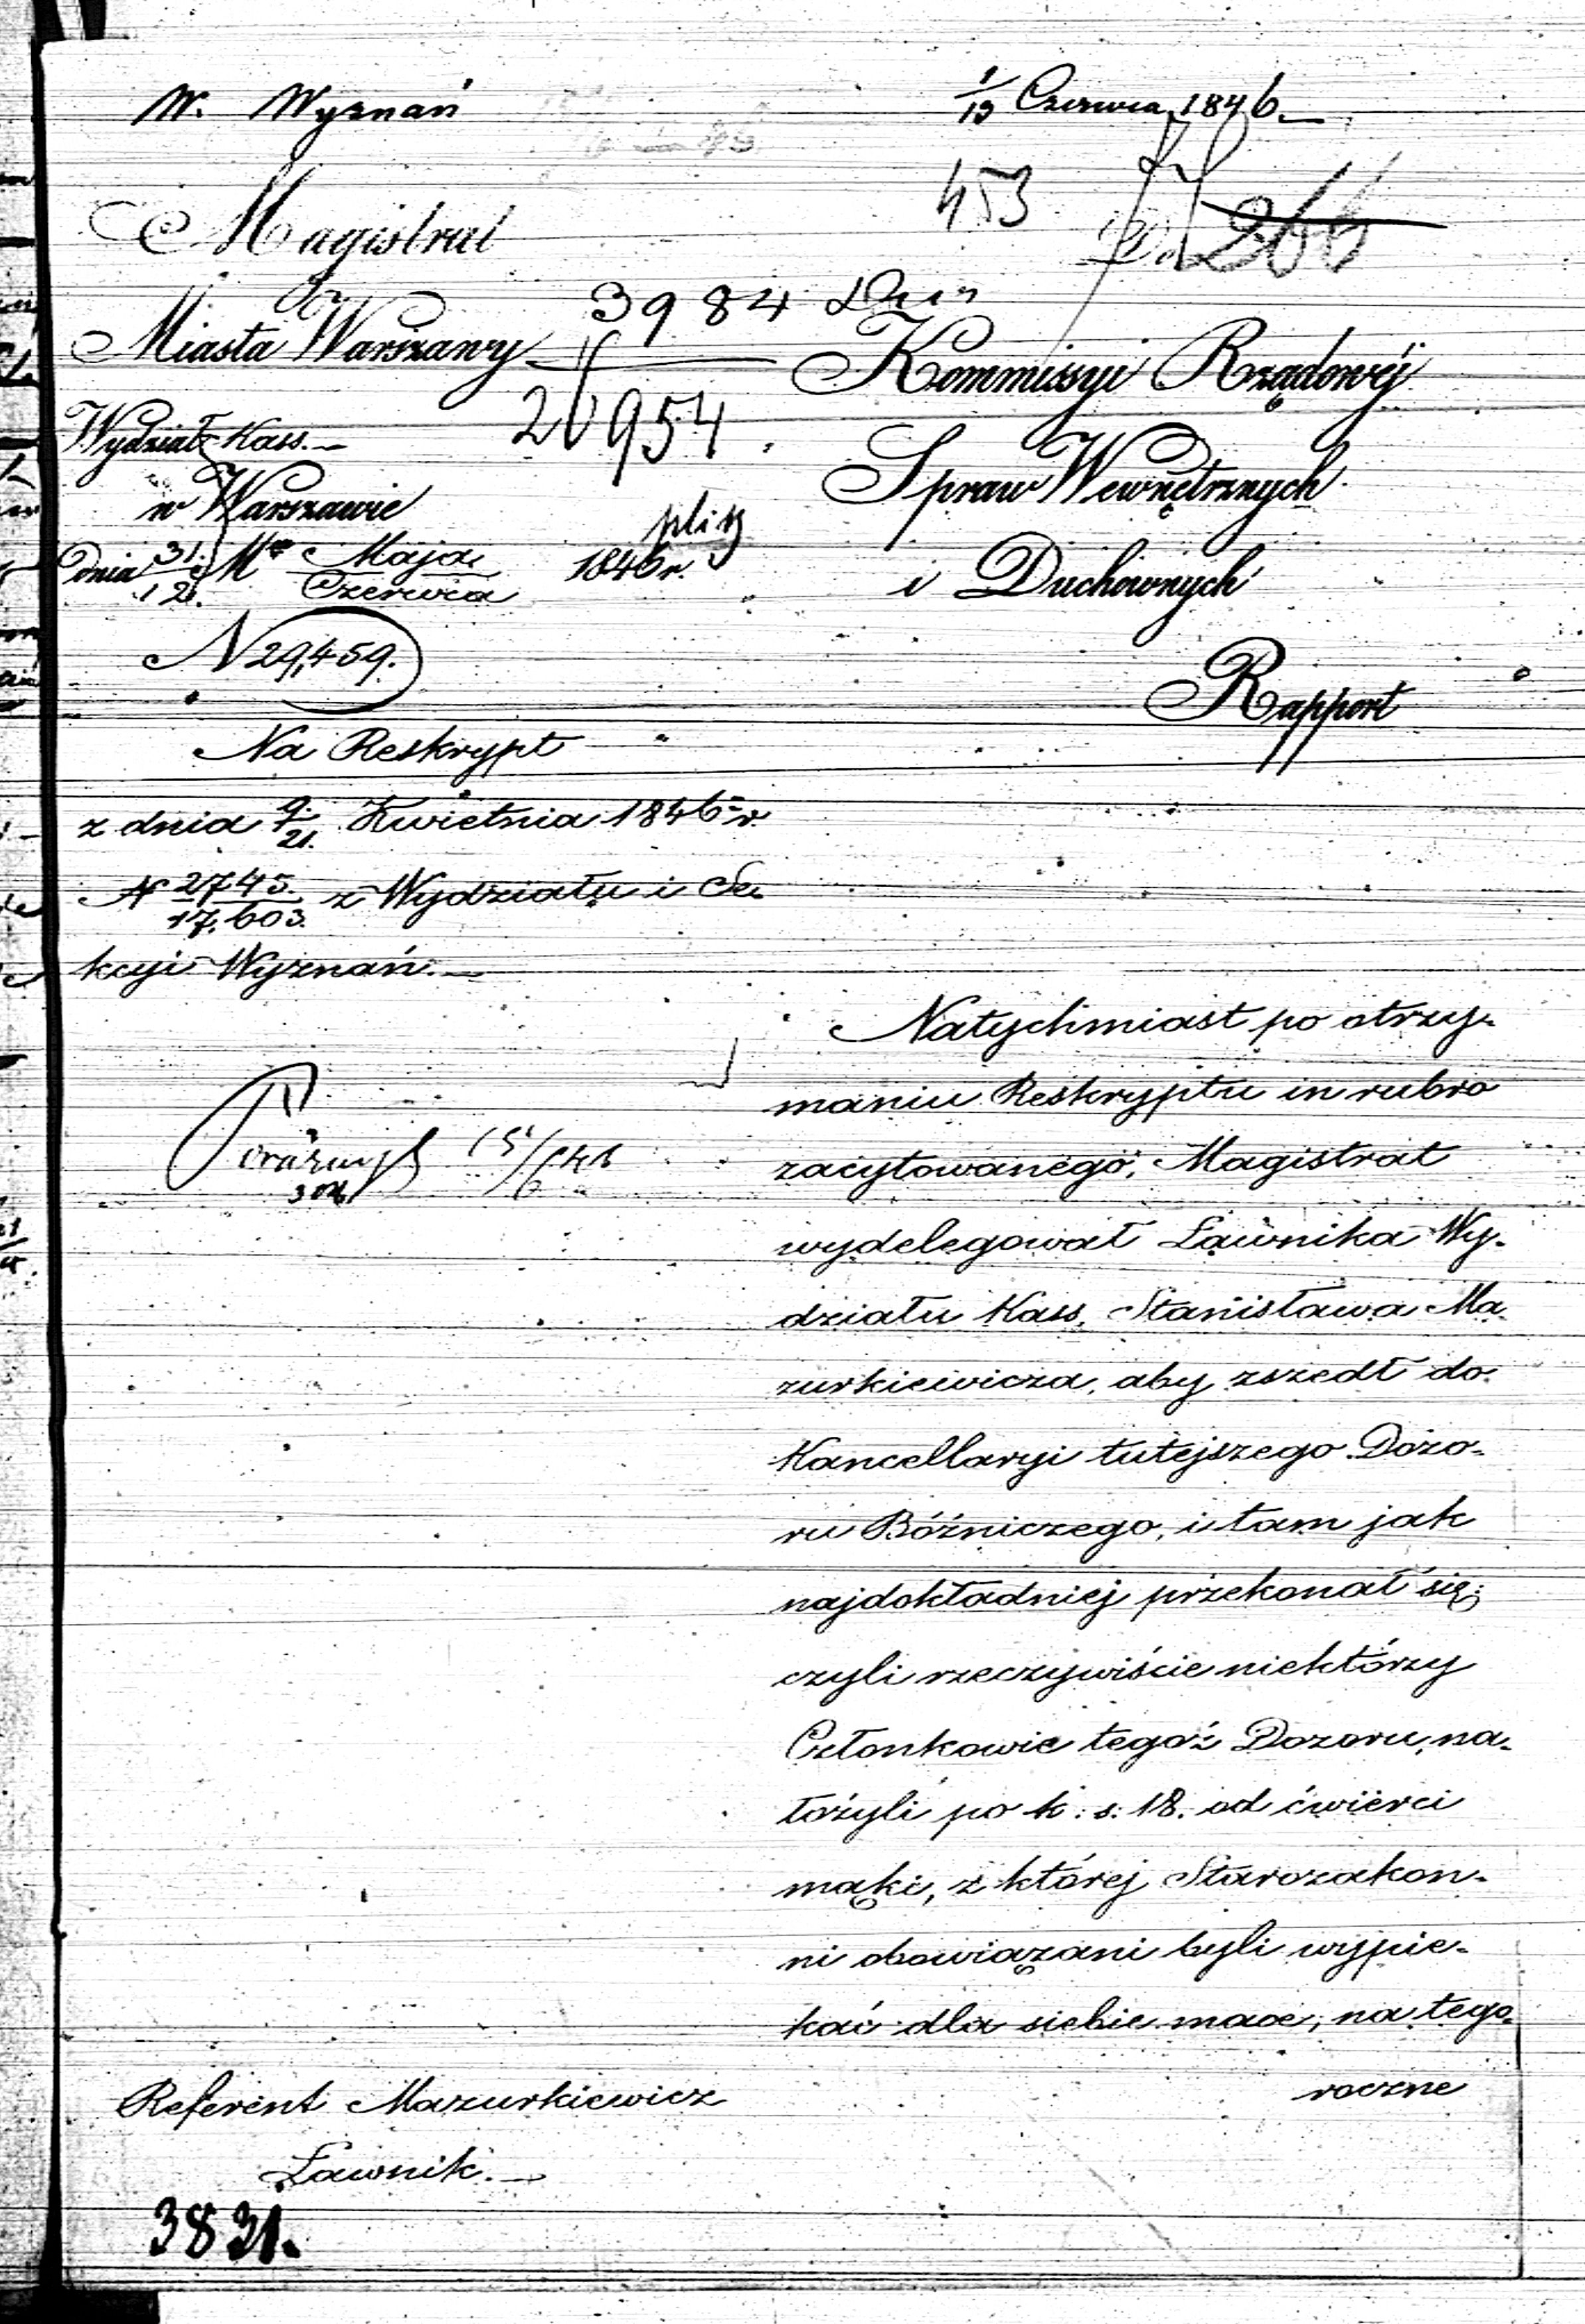 W. Wyznań
1/13 Czerwca 1846.
453
266
Magistrat
Miasta Warszawy
3984
20954
Wydział Kass.
w Warszawie
dnia 31./12. Mca Maja/Czerwca 1846 r.
N 29,459.
Kommissyi Rządowéj
Spraw Wewnętrznych
i Duchownych
Rapport
Na Reskrypt
z dnia 9./21. Kwietnia 1846 r.
N 2745./17,603. z Wydziału i Se-
kcyi Wyznań.
Natychmiast po otrzy-
maniu Reskryptu in rubro
zacytowanego, Magistrat
wydelegował Ławnika Wy-
działu Kass, Stanisława Ma-
zurkiewicza, aby zszedł do
Kancellaryi tutejszego Dozo-
ru Bóźniczego, i tam jak
najdokładniej przekonał się;
czyli rzeczywiście niektórzy
Członkowie tegoż Dozoru, na-
łożyli po k: s: 18. od ćwierci
mąki, z której Starozakon-
ni obowiązani byli wypie-
kać dla siebie mace, na tego-
roczne
Referent Mazurkiewicz
Ławnik.
3831.